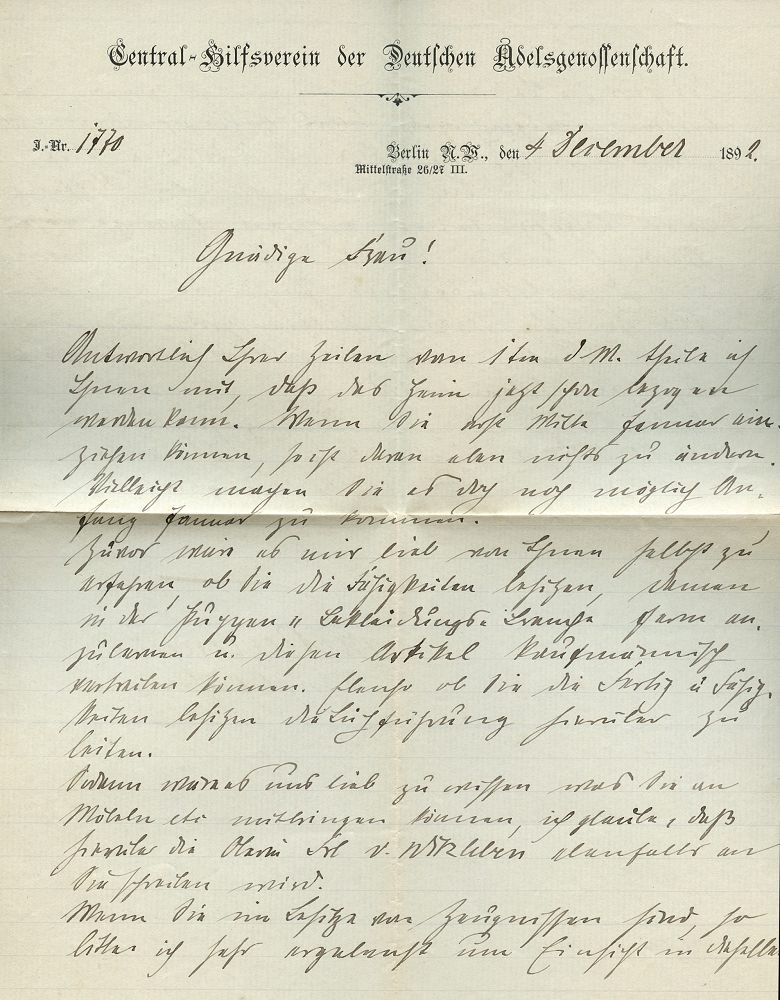 Central-Hilfsverein der Deutschen Adelsgenossenschaft.
J.-Nr. 1770
Berlin N.W., den 4 Dezember 1892.
Mittelstraße 26/27 III.
Gnädige Frau!
Antwortlich Ihrer Zeilen vom 1ten d M. theile ich
Ihnen mit, daß das Heim jetzt schon bezogen
werden kann. Wenn Sie erst Mitte Januar ein-
ziehen können, so ist daran eben nichts zu ändern.
Vielleicht machen Sie es doch noch möglich An-
fang Januar zu kommen.
Zuvor wäre es mir lieb von Ihnen selbst zu
erfahren, ob Sie die Fähigkeiten besitzen, Damen
in der Puppen- Bekleidungs- Branche an-
zulernen u. diesen Artikel kaufmännisch
vertreiben können. Ebenso ob Sie die Fertig u Fähig-
keiten besitzen die Buchführung hierüber zu
leiten.
Sodann wäre es uns lieb zu wissen was Sie an
Möbeln etc mitbringen können, ich glaube, daß
hierüber die Oberin Frl v. Witzleben ebenfalls an
Sie schreiben wird.
Wenn Sie im Besitze von Zeugnissen sind, so
bitte ich sehr ergebenst um Einsicht in dieselben